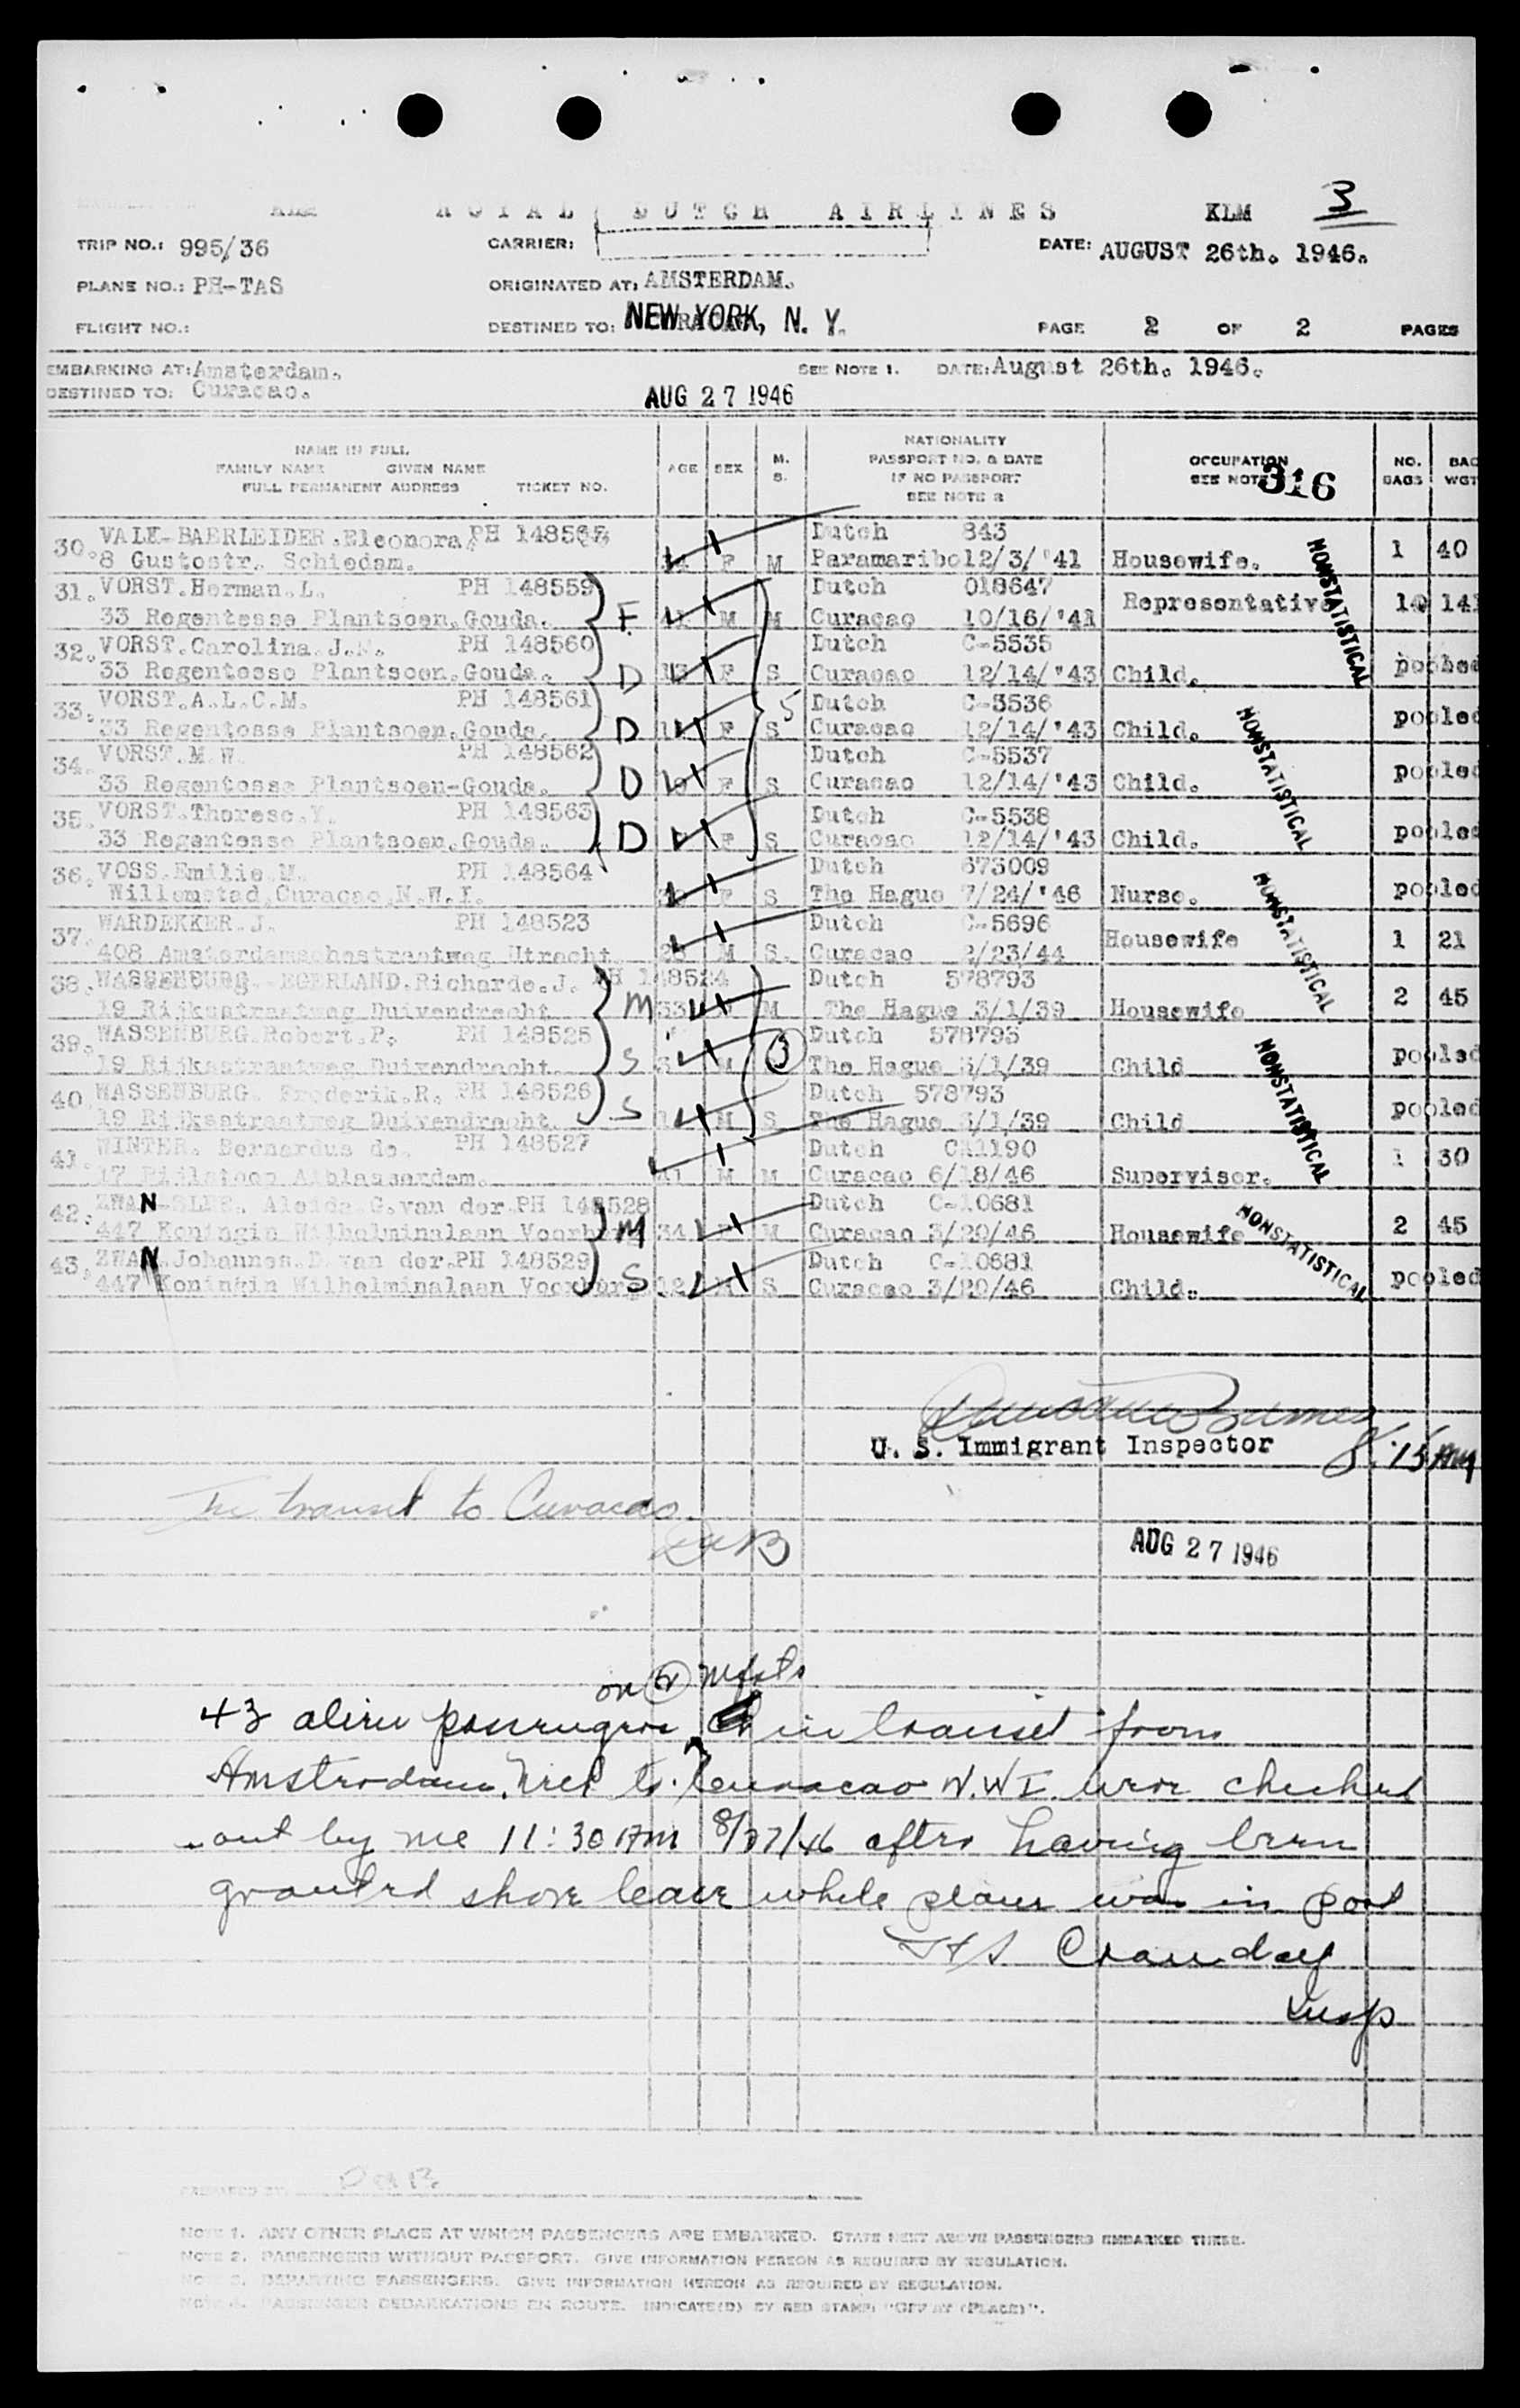 KLM ROYAL DUTCH AIRLINES KLM 3
TRIP NO.: 995/36 CARRIER: DATE: AUGUST 26th. 1946.
PLANE NO.: PH-TAS ORIGINATED AT: AMSTERDAM.
FLIGHT NO.: DESTINED TO: NEW YORK, N. Y. PAGE 2 OF 2 PAGES
EMBARKING AT: Amsterdam. SEE NOTE 1. DATE: August 26th. 1946.
DESTINED TO: Curacao. AUG 27 1946
NAME IN FULL
FAMILY NAME GIVEN NAME
FULL PERMANENT ADDRESS TICKET NO.
AGE SEX M. S.
NATIONALITY
PASSPORT NO. & DATE
IF NO PASSPORT
SEE NOTE 2
OCCUPATION
SEE NOTE 316
NO. BAGS BAG WGT
30. VALK-BAERLEIDER.Eleonora. Dutch 843
8 Gustostr. Schiedam. F M Paramaribo 12/3/'41 Housewife. 1 40
31. VORST.Herman.L. PH 148559 Dutch 018647
33 Regentesse Plantsoen.Gouda. F. 41 M M Curaçao 10/16/'41 Representative 141
32. VORST.Carolina.J.M. PH 148560 Dutch C-5535
33 Regentesse Plantsoen.Gouda. D 13 F S Curacao 12/14/'43 Child. pooled
33. VORST.A.L.C.M. PH 148561 Dutch C-5536
33 Regentesse Plantsoen.Gouda. D F S 5 Curacao 12/14/'43 Child. pooled
34. VORST.M.W. PH 148562 Dutch C-5537
33 Regentesse Plantsoen-Gouda. D F S Curacao 12/14/'43 Child. pooled
35. VORST.Therese.Y. PH 148563 Dutch C-5538
33 Regentesse Plantsoen.Gouda. D F S Curacao 12/14/'43 Child. pooled
36. VOSS.Emilie.M. PH 148564 Dutch 673009
Willemstad.Curacao.N.W.I. F S The Hague 7/24/'46 Nurse. pooled
37. WARDEKKER.J. PH 148523 Dutch C-5696
408 Amsterdamschestraatweg Utrecht 28 M S. Curacao 2/23/44 Housewife 1 21
38. WASSENBURG.-EGERLAND.Richarde.J. PH 148524 Dutch 578793
19 Rijksstraatweg Duivendrecht M 33 M The Hague 3/1/39 Housewife 2 45
39. WASSENBURG.Robert.P. PH 148525 Dutch 578793
19 Rijksstraatweg Duivendracht. S 3 M (3) The Hague 3/1/39 Child pooled
40. WASSENBURG. Frederik.R. PH 148526 Dutch 578793
19 Rijksstraatweg Duivendracht S M S The Hague 3/1/39 Child pooled
41. WINTER. Bernardus de. PH 148527 Dutch CA1190
17 Alblasserdam. 41 M M Curacao 6/18/46 Supervisor. 1 30
42. ZWAN Aleida.G.van der.PH 148528 Dutch C-10681
447 Koningin Wilhelminalaan Voorburg M 34 M Curacao 3/20/46 Housewife 2 45
43. ZWAN.Johannes.D.van der.PH 148529 Dutch C-10681
447 Koningin Wilhelminalaan Voorburg S 12 M S Curacao 3/20/46 Child. pooled
NONSTATISTICAL
NONSTATISTICAL
NONSTATISTICAL
NONSTATISTICAL
NONSTATISTICAL
U. S. Immigrant Inspector 8:15 AM
In transit to Curacao
AUG 27 1946
on (2) Mfsts
43 alien passengers in transit from
Amsterdam, Neth to Curacao N.W.I. were checked
out by me 11:30 AM 8/27/46 after having been
granted shore leave while plane was in port
Insp
PREPARED BY
NOTE 1. ANY OTHER PLACE AT WHICH PASSENGERS ARE EMBARKED. STATE NEXT ABOVE PASSENGERS EMBARKED THERE.
NOTE 2. PASSENGERS WITHOUT PASSPORT. GIVE INFORMATION HEREON AS REQUIRED BY REGULATION.
NOTE 3. DEPARTING PASSENGERS. GIVE INFORMATION HEREON AS REQUIRED BY REGULATION.
NOTE 4. PASSENGER DEBARKATIONS EN ROUTE. INDICATE(D) BY RED STAMP: "OFF AT (PLACE)".